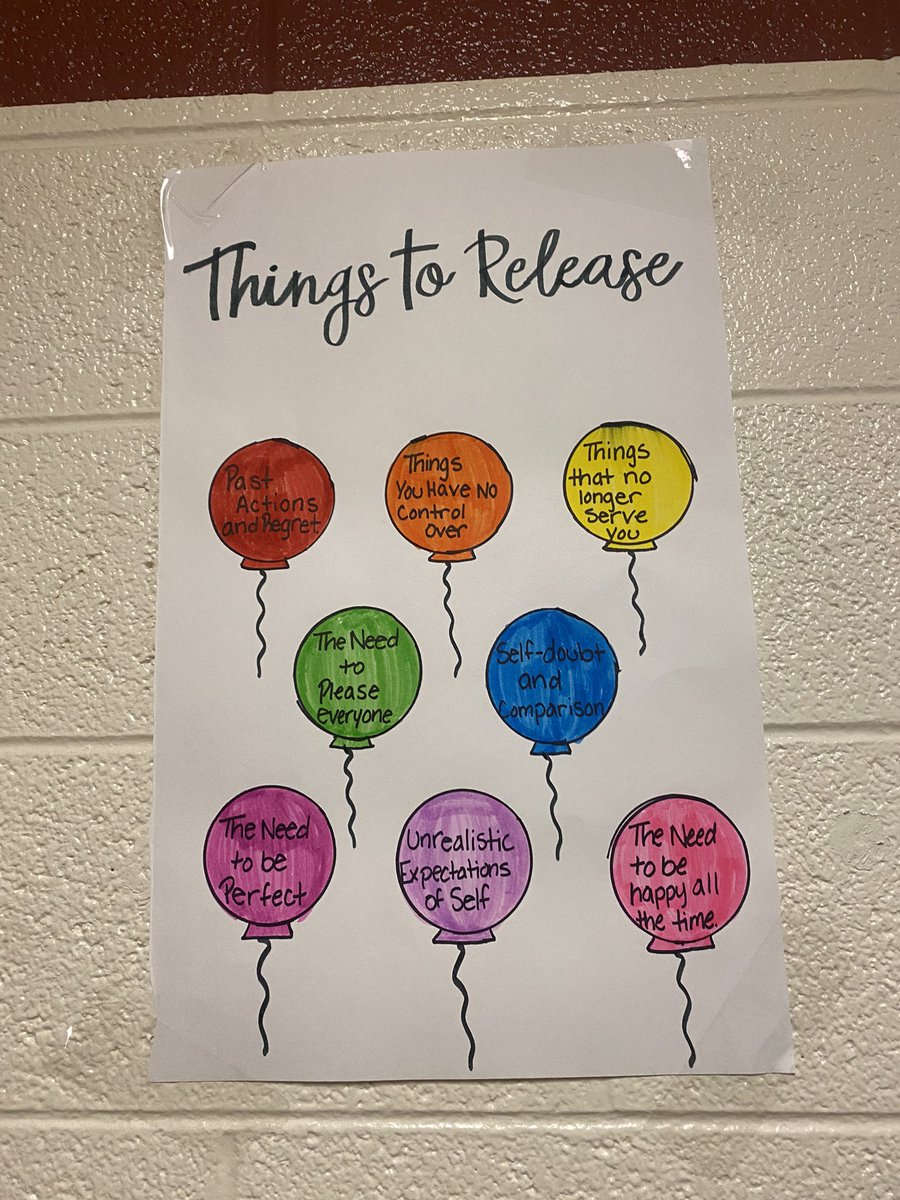 Things to Release
Past
Actions
and Regret.
Things
You Have No
Control
Over
Things
that no
longer
serve
you
The Need
to
Please
everyone
Self-doubt
and
Comparison
The Need
to be
Perfect
Unrealistic
Expectations
of Self
The Need
to be
happy all
the time.